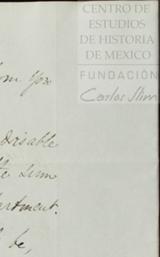 CENTRO DE
ESTUDIOS
DE HISTORIA
DE MEXICO
FUNDACIÓN
Carlos Slim
from you
disable
the same
partment.
be,